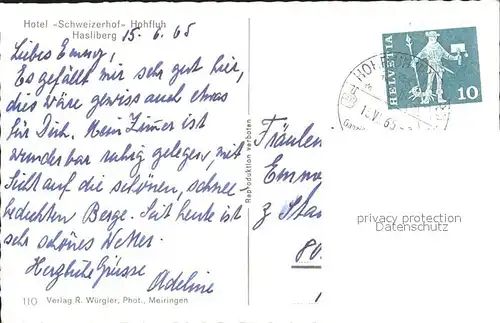 Hotel «Schweizerhof» Hohfluh
Hasliberg
15. 6. 65
Liebes Emmy,
Es gefällt mir sehr gut hier,
dies wäre gewiss auch etwas
für Dich. Mein Zimmer ist
wunderbar ruhig gelegen, mit
Sicht auf die schönen, schnee-
bedeckten Berge. Seit heute ist
sehr schönes Wetter.
Herzliche Grüsse
Adeline
110 Verlag R. Würgler, Phot., Meiringen
Reproduktion verboten
HELVETIA
10
Fräulein
Emm
z Sta
80
privacy protection
Datenschutz